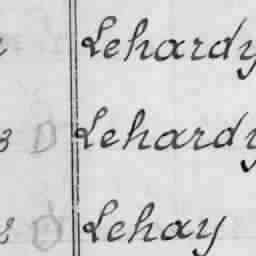 Lehardy
3 D Lehardy
Lehay